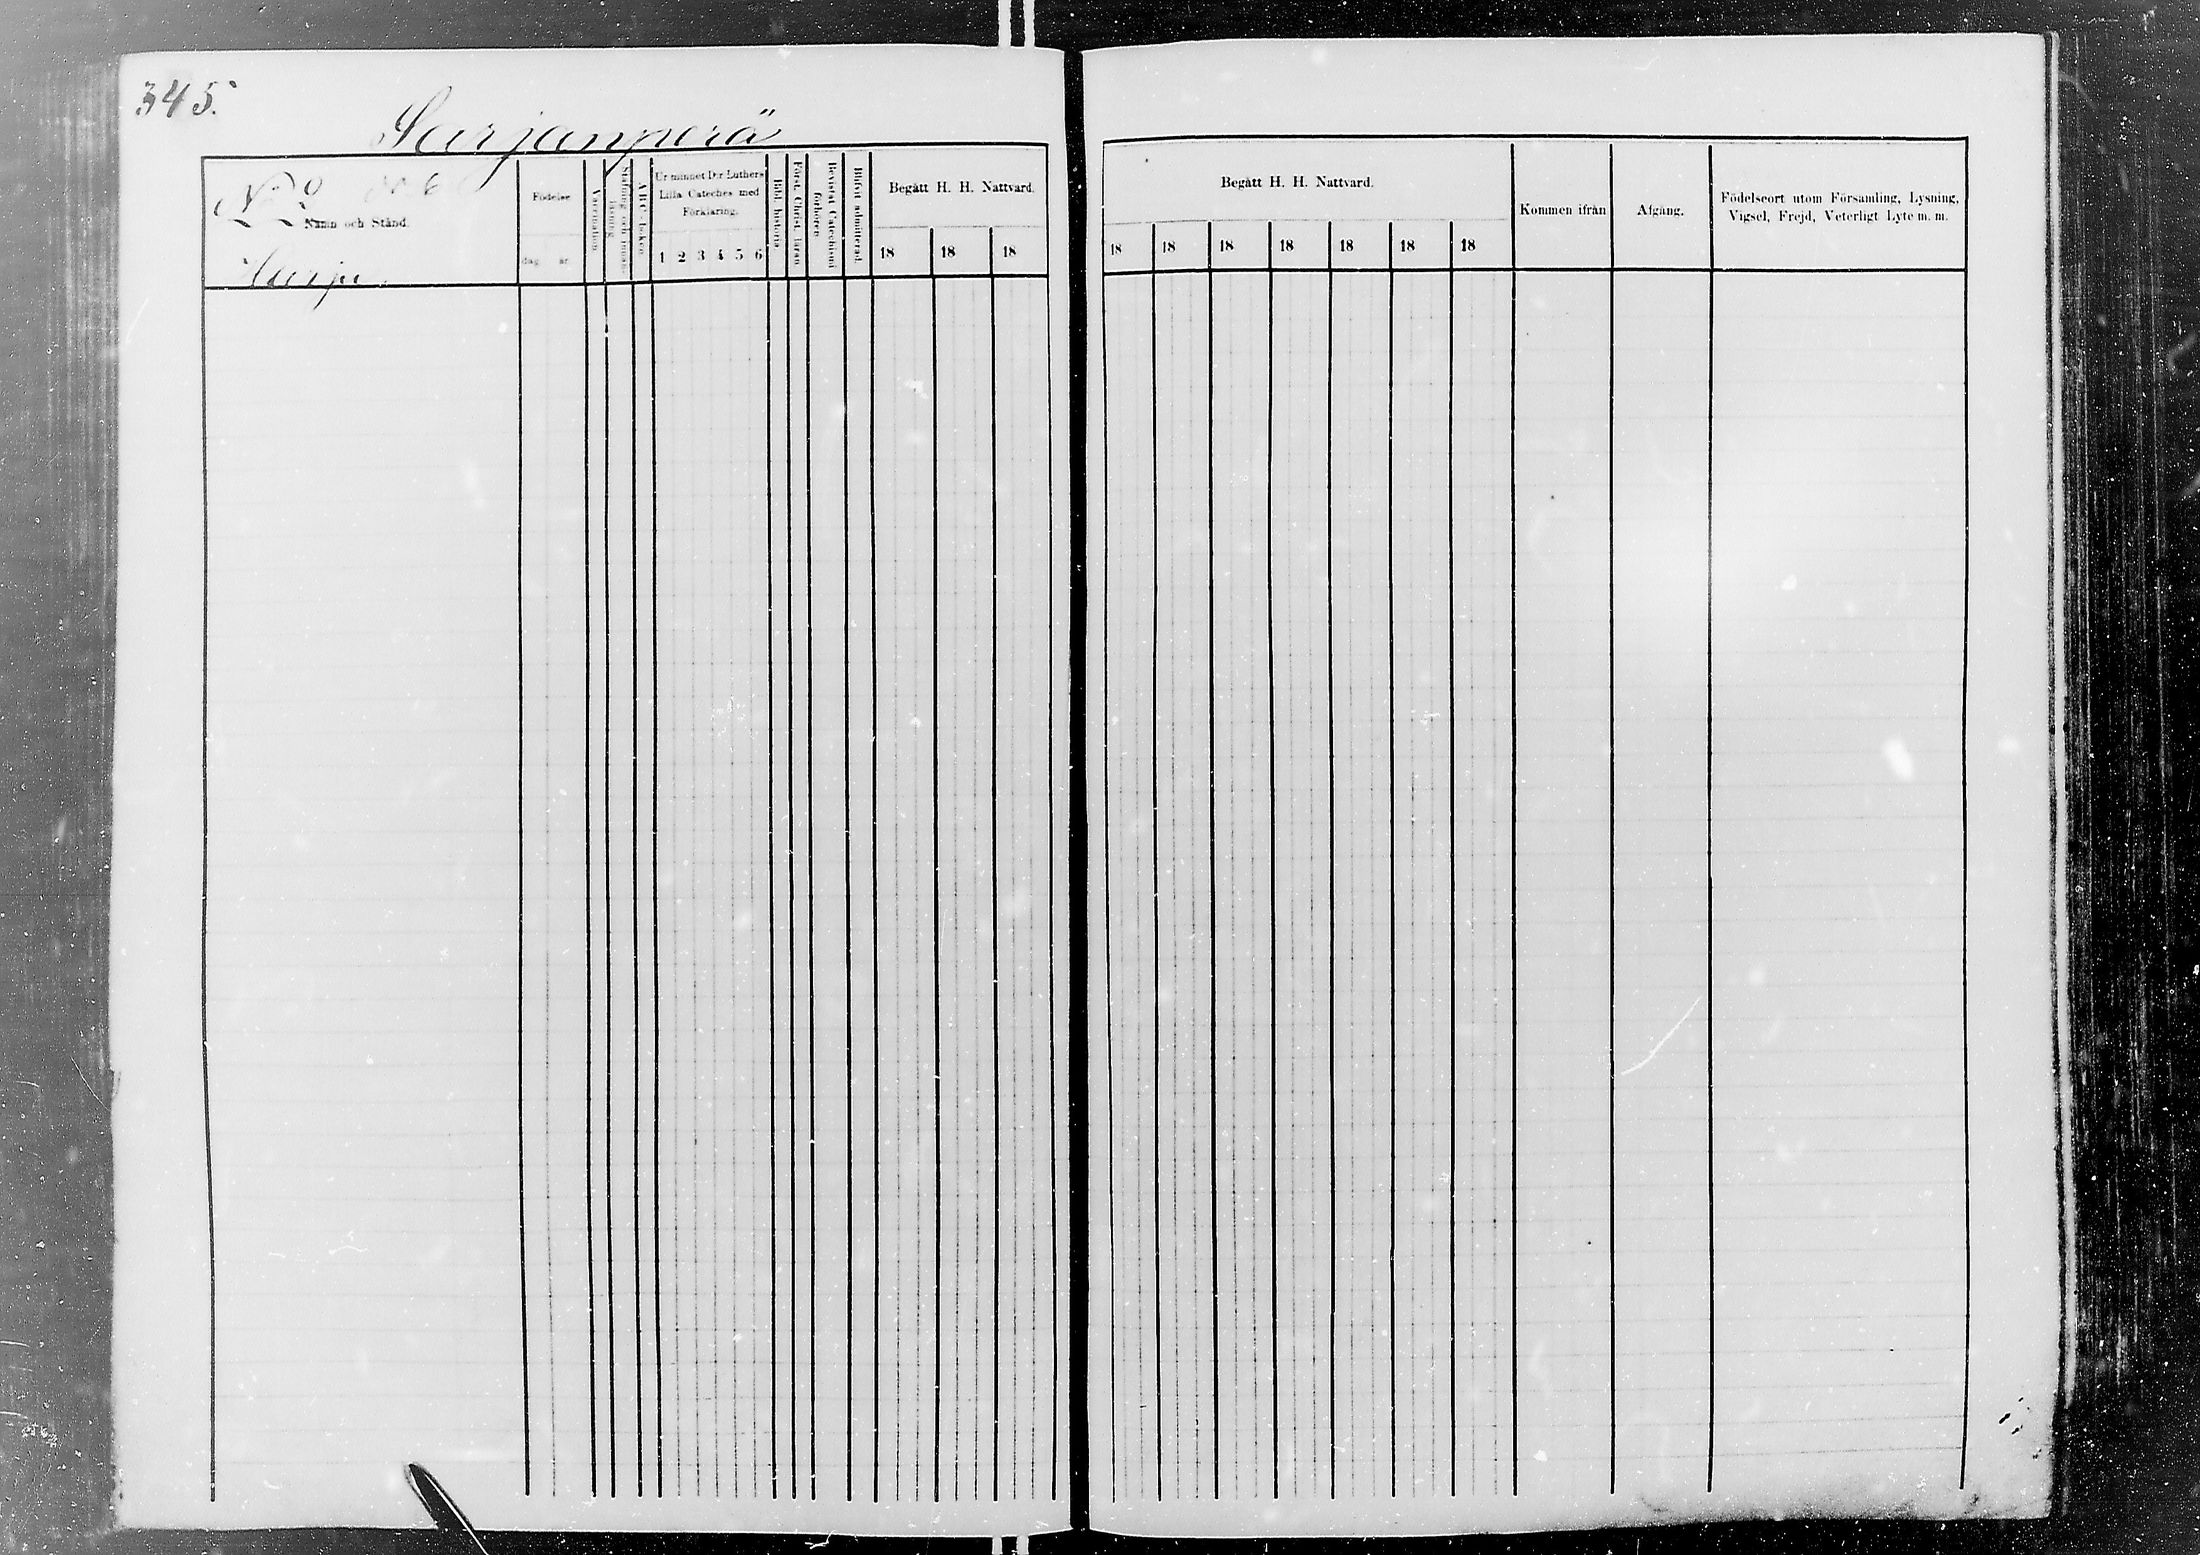 345.
Sarjanperä
No
Namn och Stånd.
Harju
Födelse
dag. år.
Vaccination
Stafning och innan-
läsning
ABC-boken
Ur minnet D:r Luthers
Lilla Cateches med
Förklaring.
1 2 3 4 5 6
Bibl. historia
Först. Christ. läran
Bevistat Catechismi
förhören
Blifvit admitterad.
Begått H. H. Nattvard.
18 18 18
Begått H. H. Nattvard.
18 18 18 18 18 18 18
Kommen ifrån
Afgång.
Födelseort utom Församling, Lysning,
Vigsel, Frejd, Veterligt Lyte m. m.